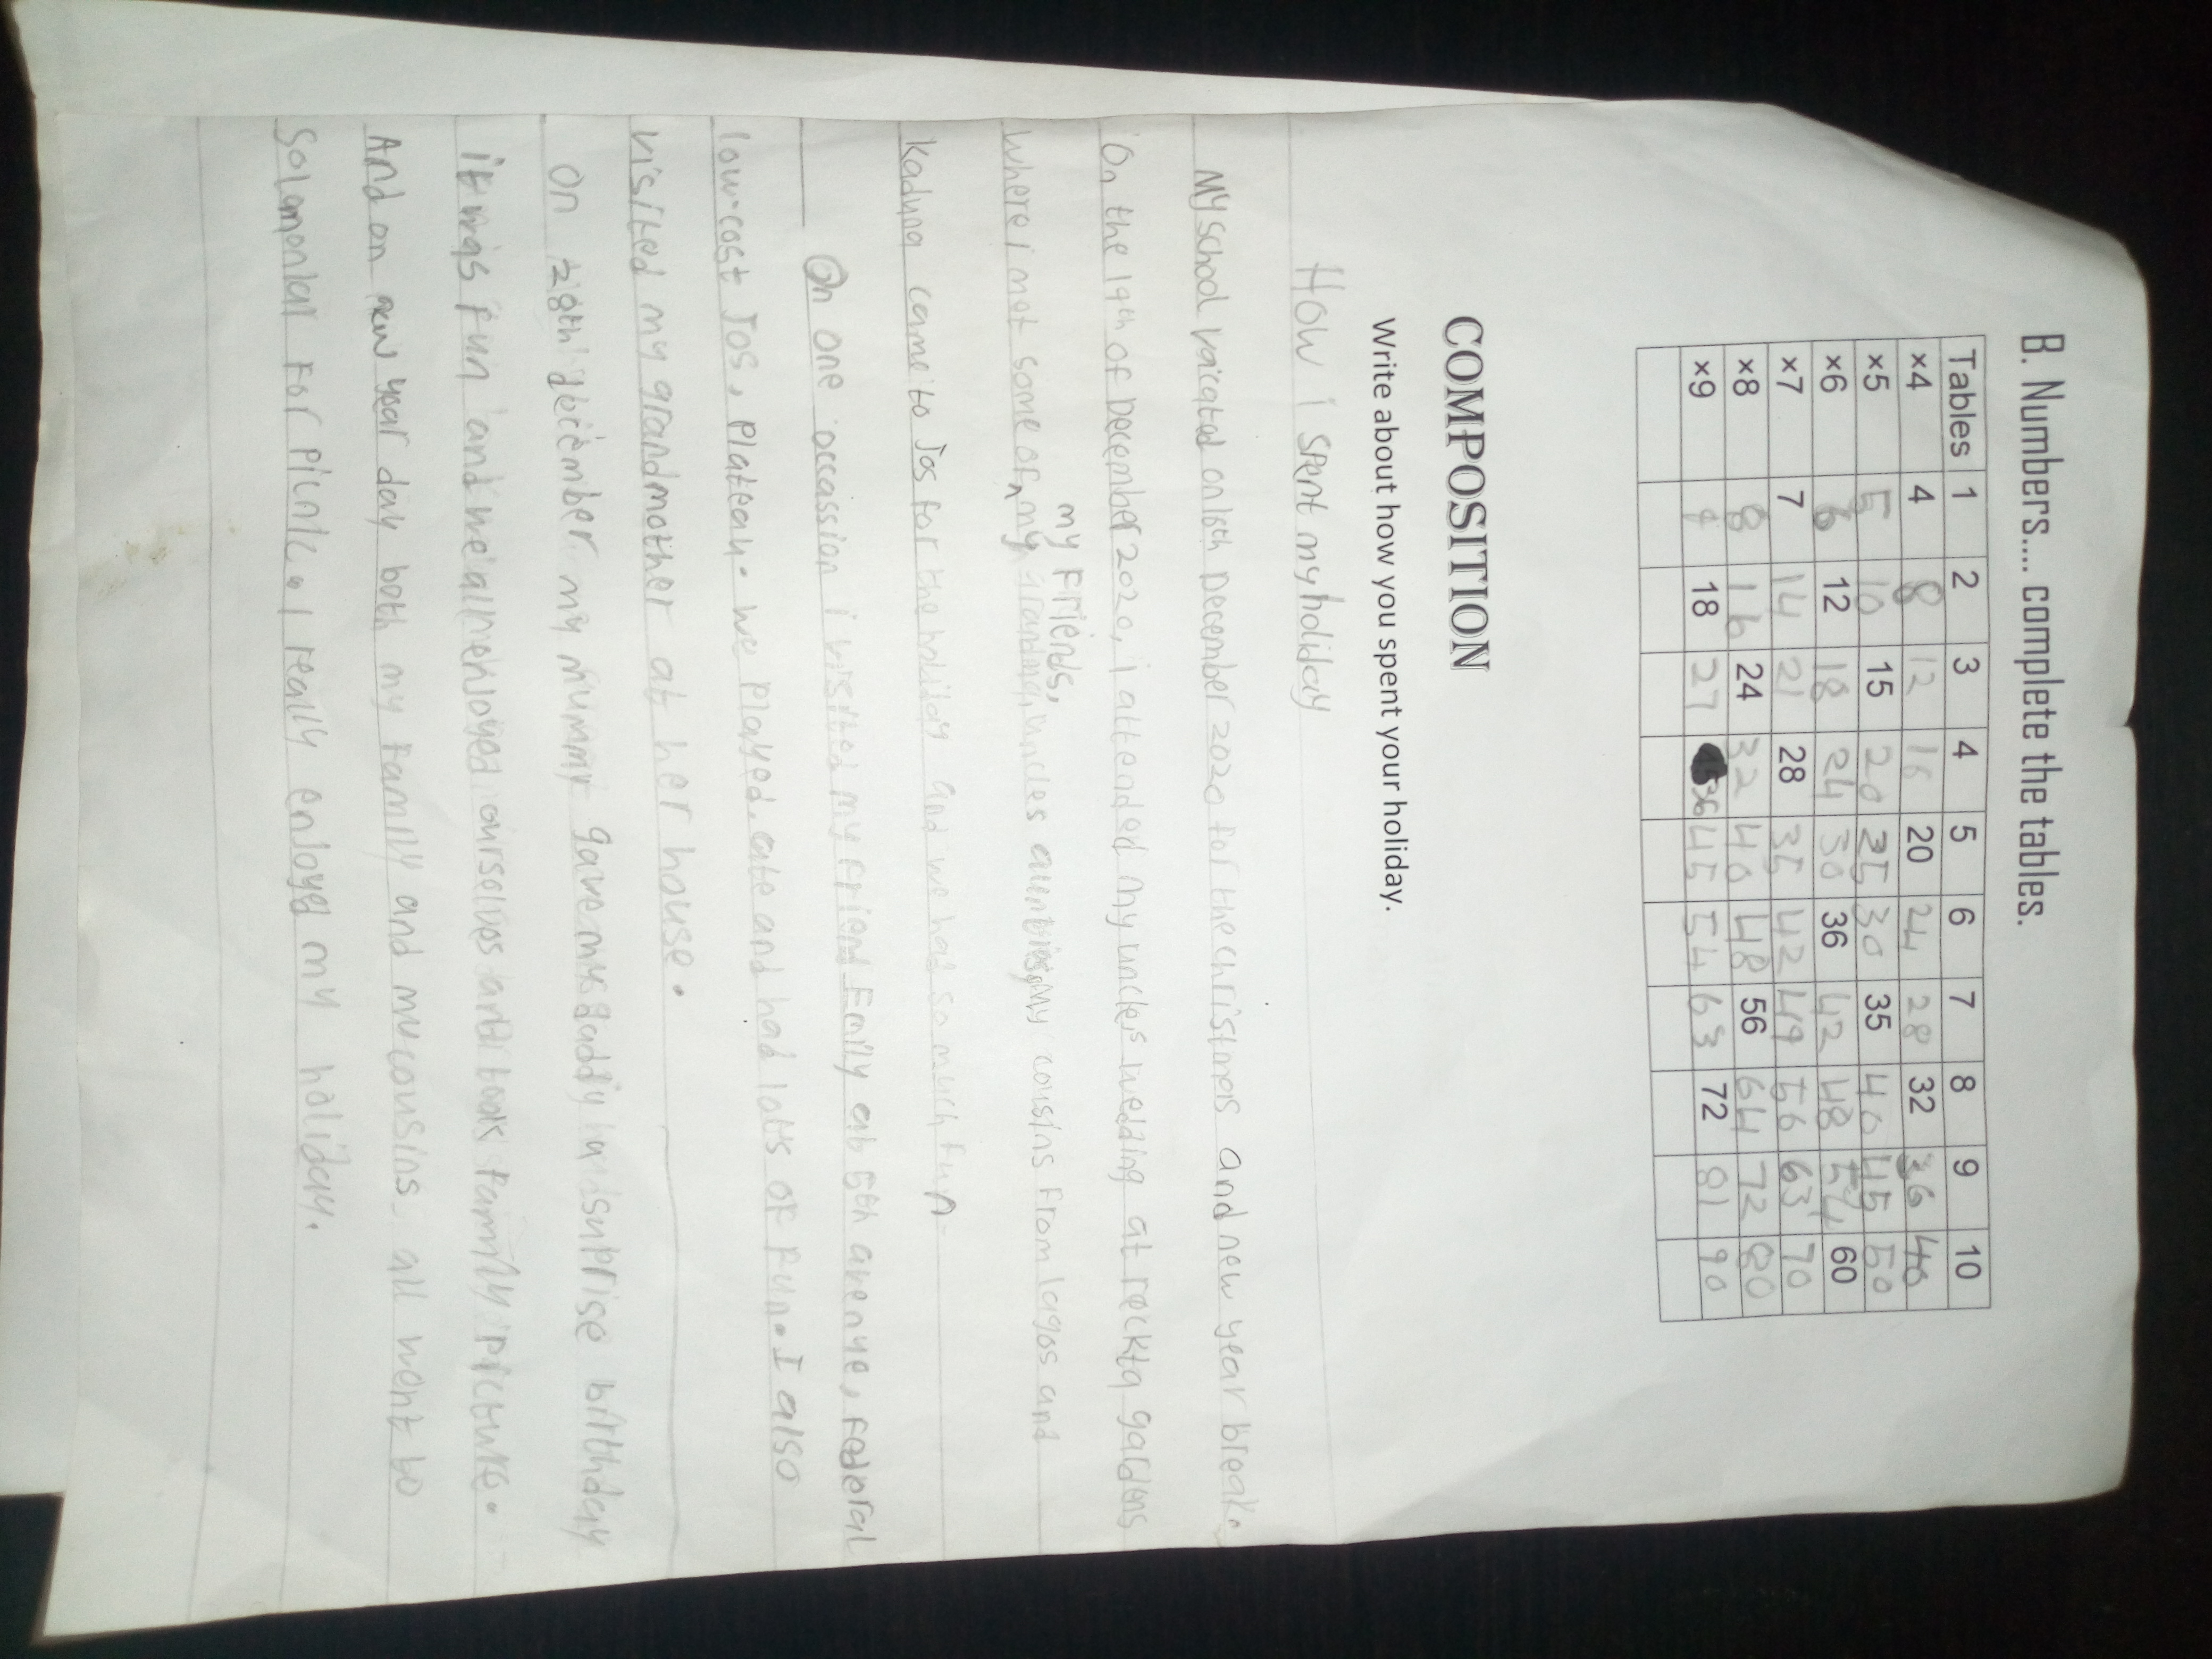 B. Numbers.... complete the tables.
Tables 1 2 3 4 5 6 7 8 9 10
×4 4 8 12 16 20 24 28 32 36 40
×5 5 10 15 20 25 30 35 40 45 50
×6 6 12 18 24 30 36 42 48 54 60
×7 7 14 21 28 35 42 49 56 63 70
×8 8 16 24 32 40 48 56 64 72 80
×9 9 18 27 36 45 54 63 72 81 90
COMPOSITION
Write about how you spent your holiday.
How i spent my holiday
My school vacated on 16th December 2020 for the christmas and new year break
On the 19th of December 2020, i attended my uncles wedding at reckta galdens
my Friends,
where i met some of my uncles my cousins From lagos and
kaduna came to Jos for the holiday and we had so much fun
On one occassion i visited my friend Emily at 5th avenue, Federal
low-cost Jos, Plateau. we played, ate and had lots of fun. I also
visited my grandmother at her house.
On december my mummy gave my daddy surprise birthday
it was fun and we all ourselves and took family picture.
And on new year day both my Family and my cousins all went to
Solomonlar For Picnic. I really enjoyed my holiday.